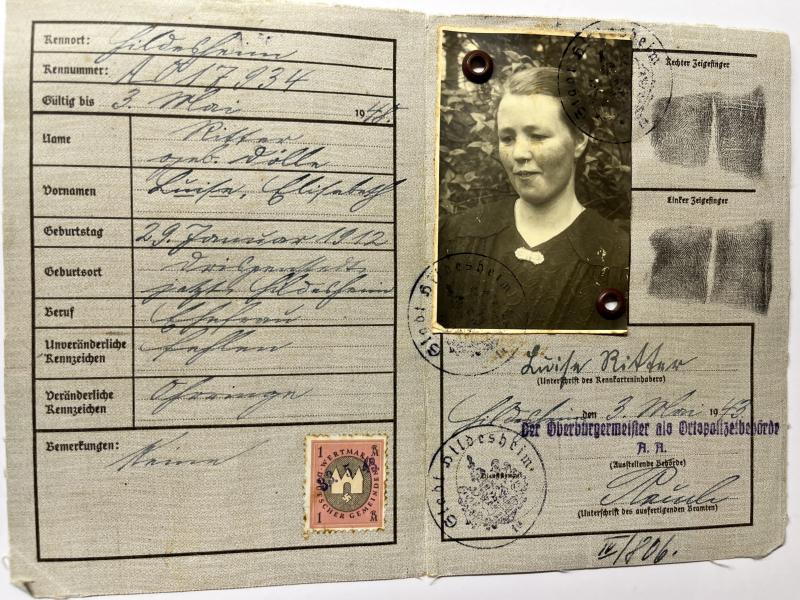 Kennort: Hildesheim
Kennummer: A 017934
Gültig bis 3. Mai 1948.
Name Ritter
geb. Dölle
Vornamen Luise, Elisabeth
Geburtstag 29. Januar 1912
Geburtsort Drispenstedt
jetzt Hildesheim
Beruf Ehefrau
Unveränderliche Kennzeichen fehlen
Veränderliche Kennzeichen Ohrringe
Bemerkungen: Keine
1 WERTMARKE 1
DEUTSCHER GEMEINDEN
1 RM 1 RM
Stadt Hildesheim
Rechter Zeigefinger
Linker Zeigefinger
Stadt Hildesheim
Luise Ritter
(Unterschrift des Kennkarteninhabers)
Hildesheim den 3. Mai 1943
Der Oberbürgermeister als Ortspolizeibehörde
A. A.
(Ausstellende Behörde)
Stadt Hildesheim.
Dienststempel
(Unterschrift des ausfertigenden Beamten)
IV/806.